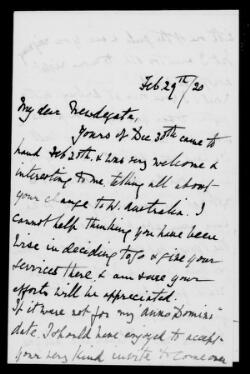 Feb 29th/20
My dear Newdegate,
Yours of Dec 30th came to
hand Feb 28th. & was very welcome &
interesting to me telling all about
your change to W. Australia. I
cannot help thinking you have been
wise in deciding to go & give your
services there & am sure your
efforts will be appreciated.
If it were not for my "Anno Domini"
date, I should have enjoyed to accept
your very kind invite to come over